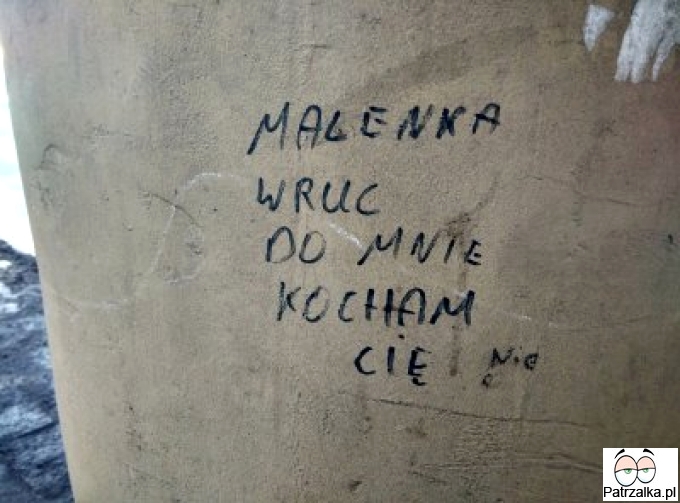 MALENKA
WRUC
DO MNIE
KOCHAM
CIĘ! Nie
Patrzalka.pl